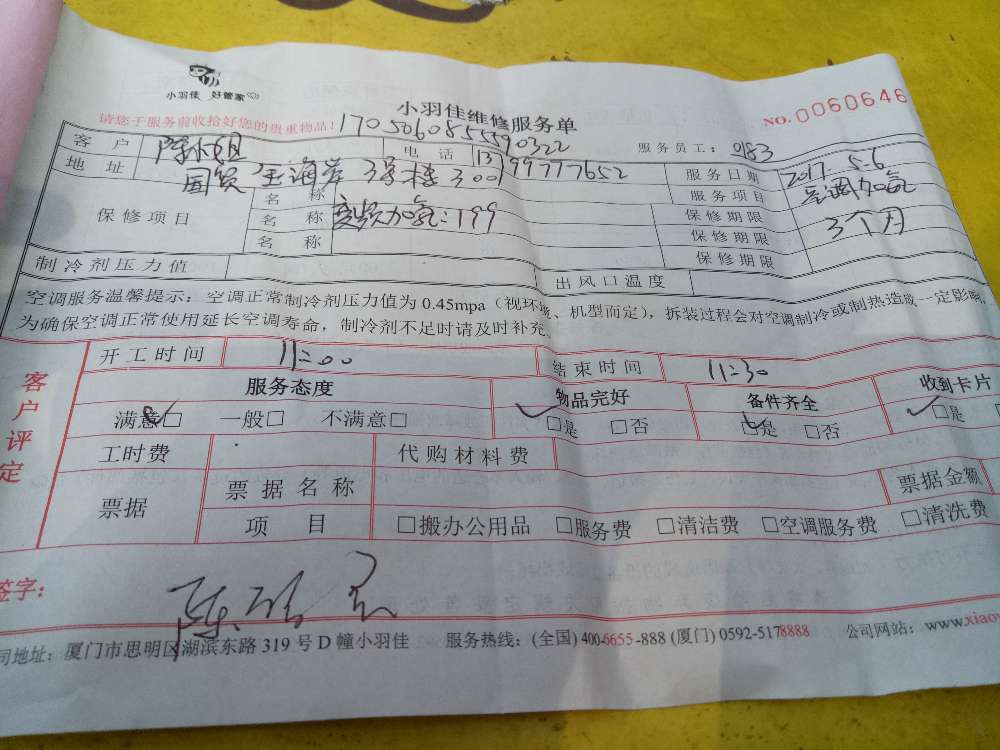 小羽佳 好管家
小羽佳维修服务单
NO.0060646
请您于服务前收拾好您的贵重物品!
1705060855590322
服务员工: 983
客户 陈小姐 电话 13799777652 服务日期 2017.5.6
地址 国贸 金海岸 3号楼 3001 服务项目 空调加氟
保修项目 名称 变频加氟:199 保修期限 3个月
名称 保修期限
名称 保修期限
制冷剂压力值 出风口温度
空调服务温馨提示:空调正常制冷剂压力值为 0.45mpa(视环境、机型而定),拆装过程会对空调制冷或制热造成一定影响,
为确保空调正常使用延长空调寿命,制冷剂不足时请及时补充。
客户评定
开工时间 11:00 结束时间 11:30
服务态度 物品完好 备件齐全 收到卡片
满意□ 一般□ 不满意□ □是 □否 □是 □否 □是
工时费 代购材料费
票据 票据名称 票据金额
项目 □搬办公用品 □服务费 □清洁费 □空调服务费 □清洗费
签字:
司地址:厦门市思明区湖滨东路 319 号 D 幢小羽佳 服务热线:(全国) 400-6655-888 (厦门) 0592-5178888 公司网站:www.xiaoy